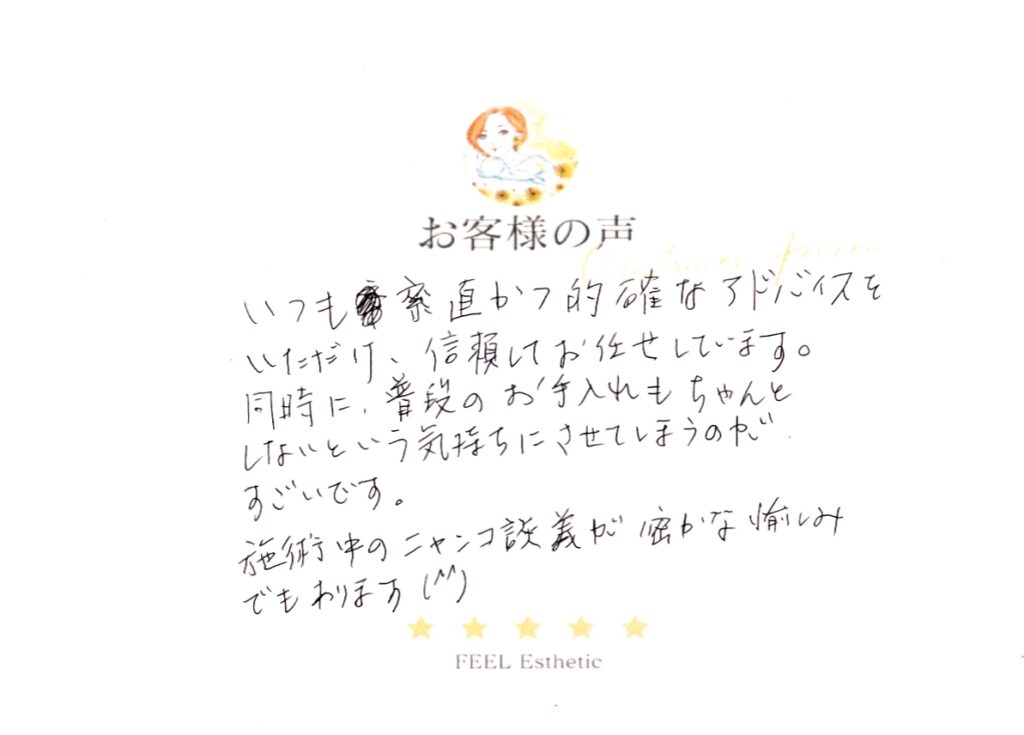 お客様の声
Customer Review
いつも率直かつ的確なアドバイスを
いただけ、信頼してお任せしています。
同時に、普段のお手入れもちゃんと
しないとという気持ちにさせてしまうのが、
すごいです。
施術中のニャンコ談義が密かな愉しみ
でもあります(^^)
FEEL Esthetic